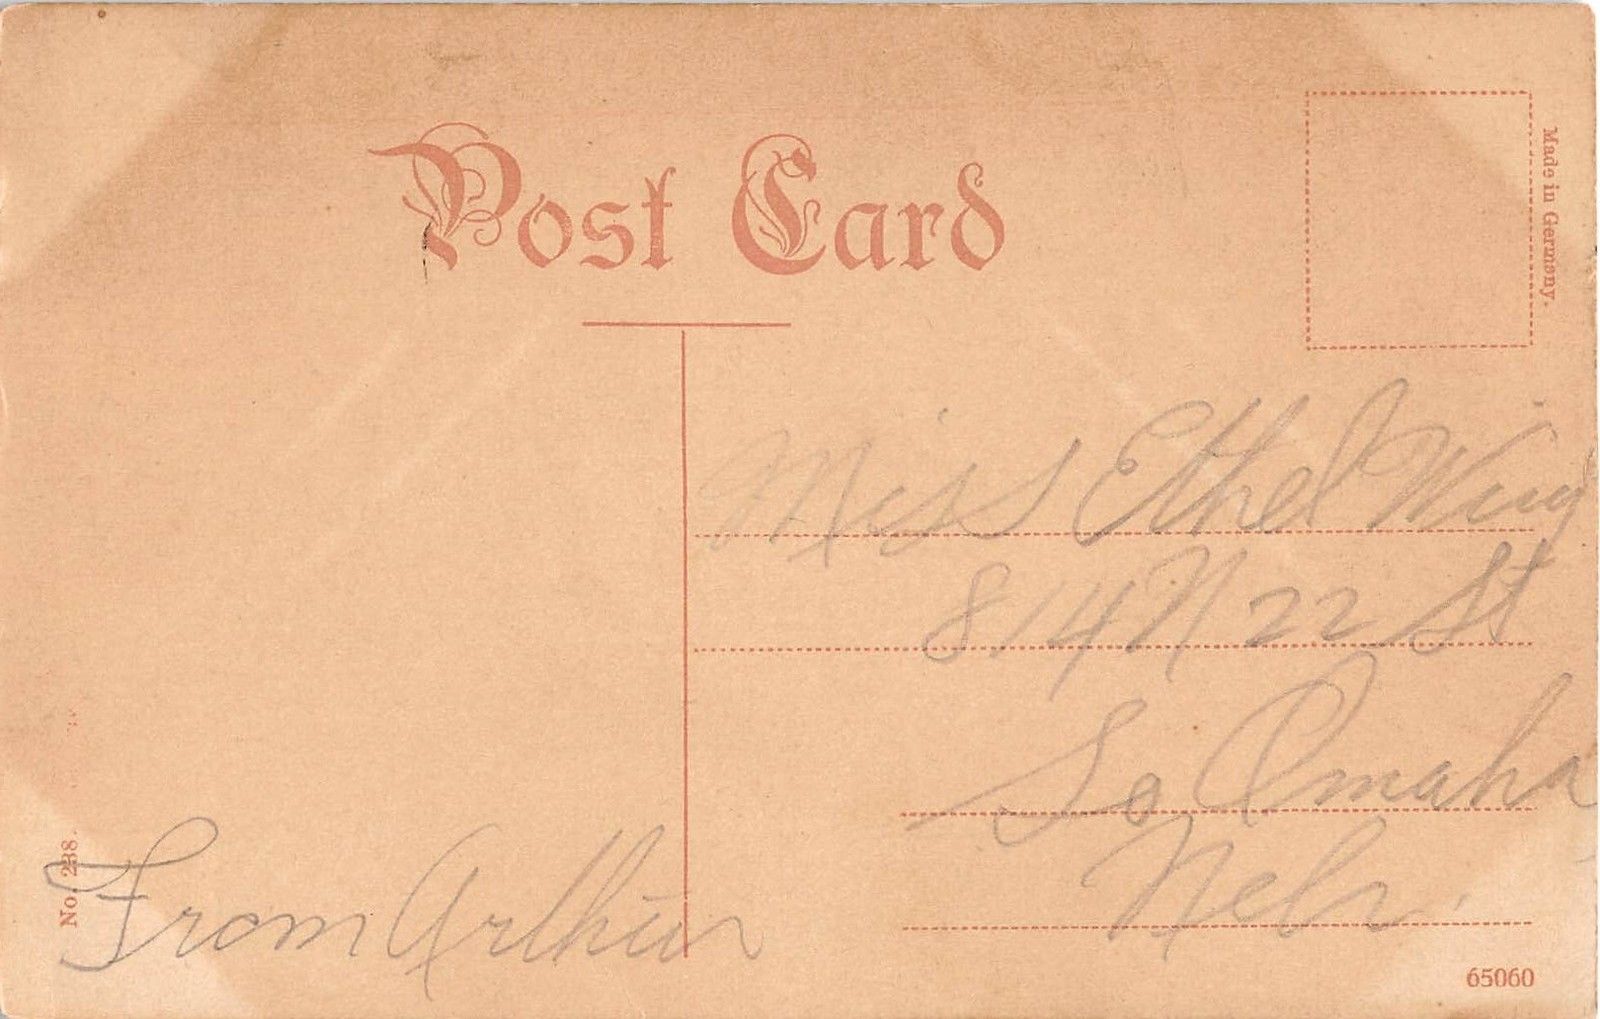 Post Card
Made in Germany.
Miss Ethel Wing
814 N 22 St
So Omaha
Nebr.
From Arthur
No. 238.
65060